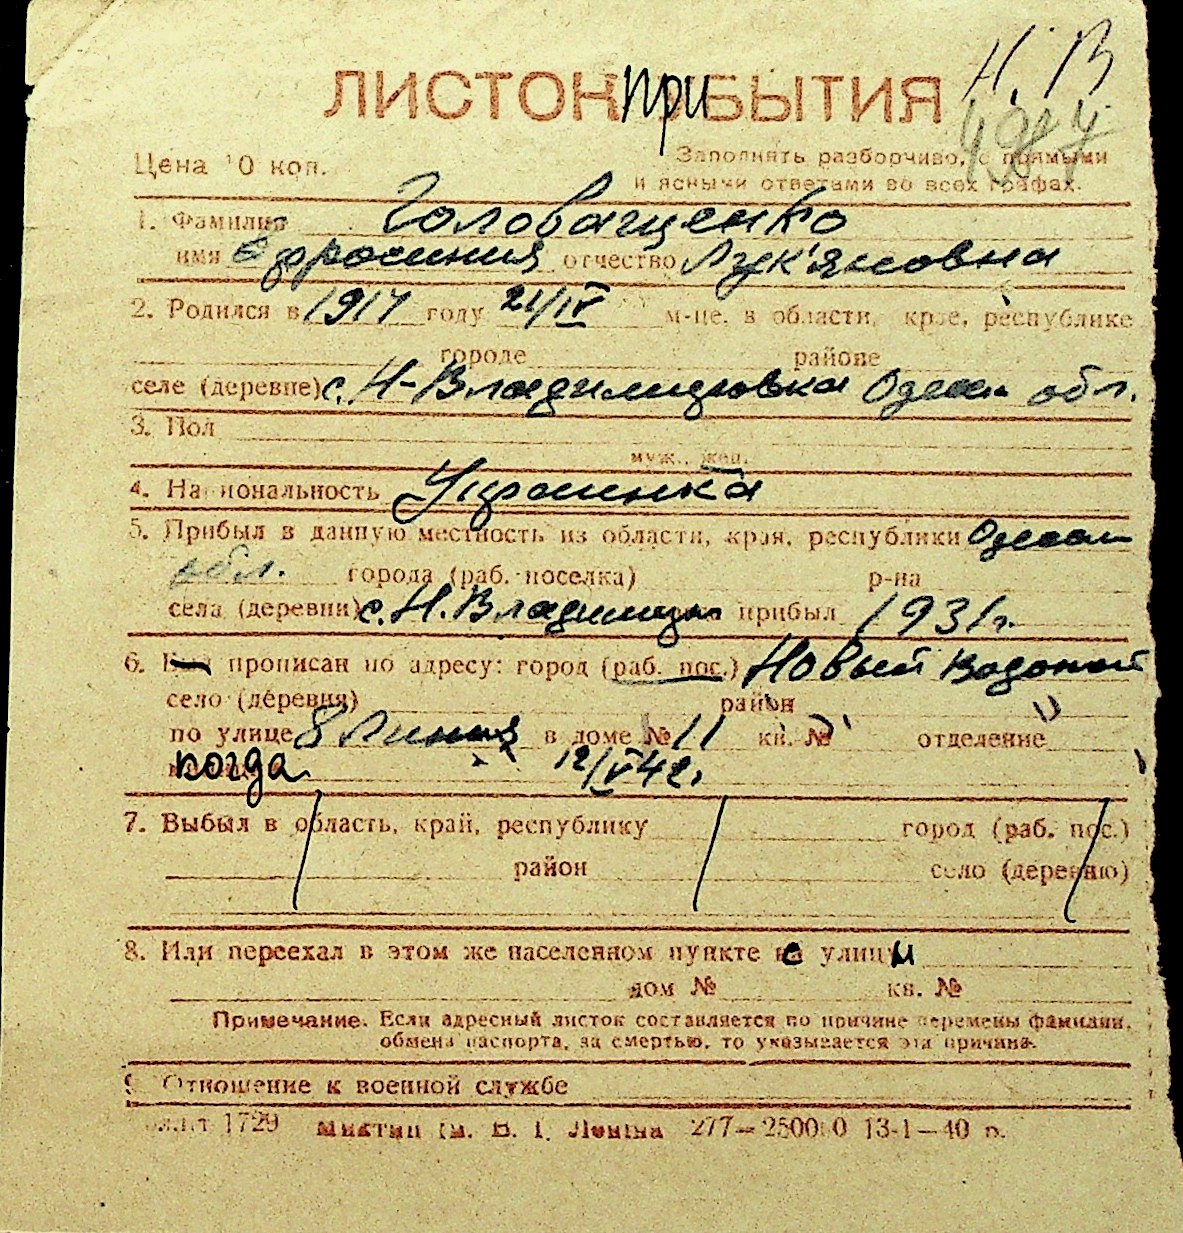 Н. В
ЛИСТОК ПРИБЫТИЯ
4984
Цена 10 коп. Заполнять разборчиво, с прямыми
и ясными ответами во всех графах.
1. Фамилия Головащенко
имя Ефросиния отчество Лук'яновна
2. Родился в 1917 году 21/IV м-це, в области, крае, республике
городе районе
селе (деревне) с. Н-Владимировка Одесск обл.
3. Пол
муж., жен.
4. Национальность Украинка
5. Прибыл в данную местность из области, края, республики Одесск
обл. города (раб. поселка) р-на
села (деревни) с. Н. Владимир прибыл 1931 г.
6. прописан по адресу: город (раб. пос.) Новый Водопой
село (деревня) район
по улице 8 Линия в доме № 11 кв. № отделение
когда 12/V 42 г.
7. Выбыл в область, край, республику город (раб. пос.)
район село (деревню)
8. Или переехал в этом же населенном пункте с улицы
дом № кв. №
Примечание. Если адресный листок составляется по причине перемены фамилии,
обмена паспорта, за смертью, то указывается эта причина.
9. Отношение к военной службе
1729 им. В. И. Ленина 277—2500 0 13-1—40 р.